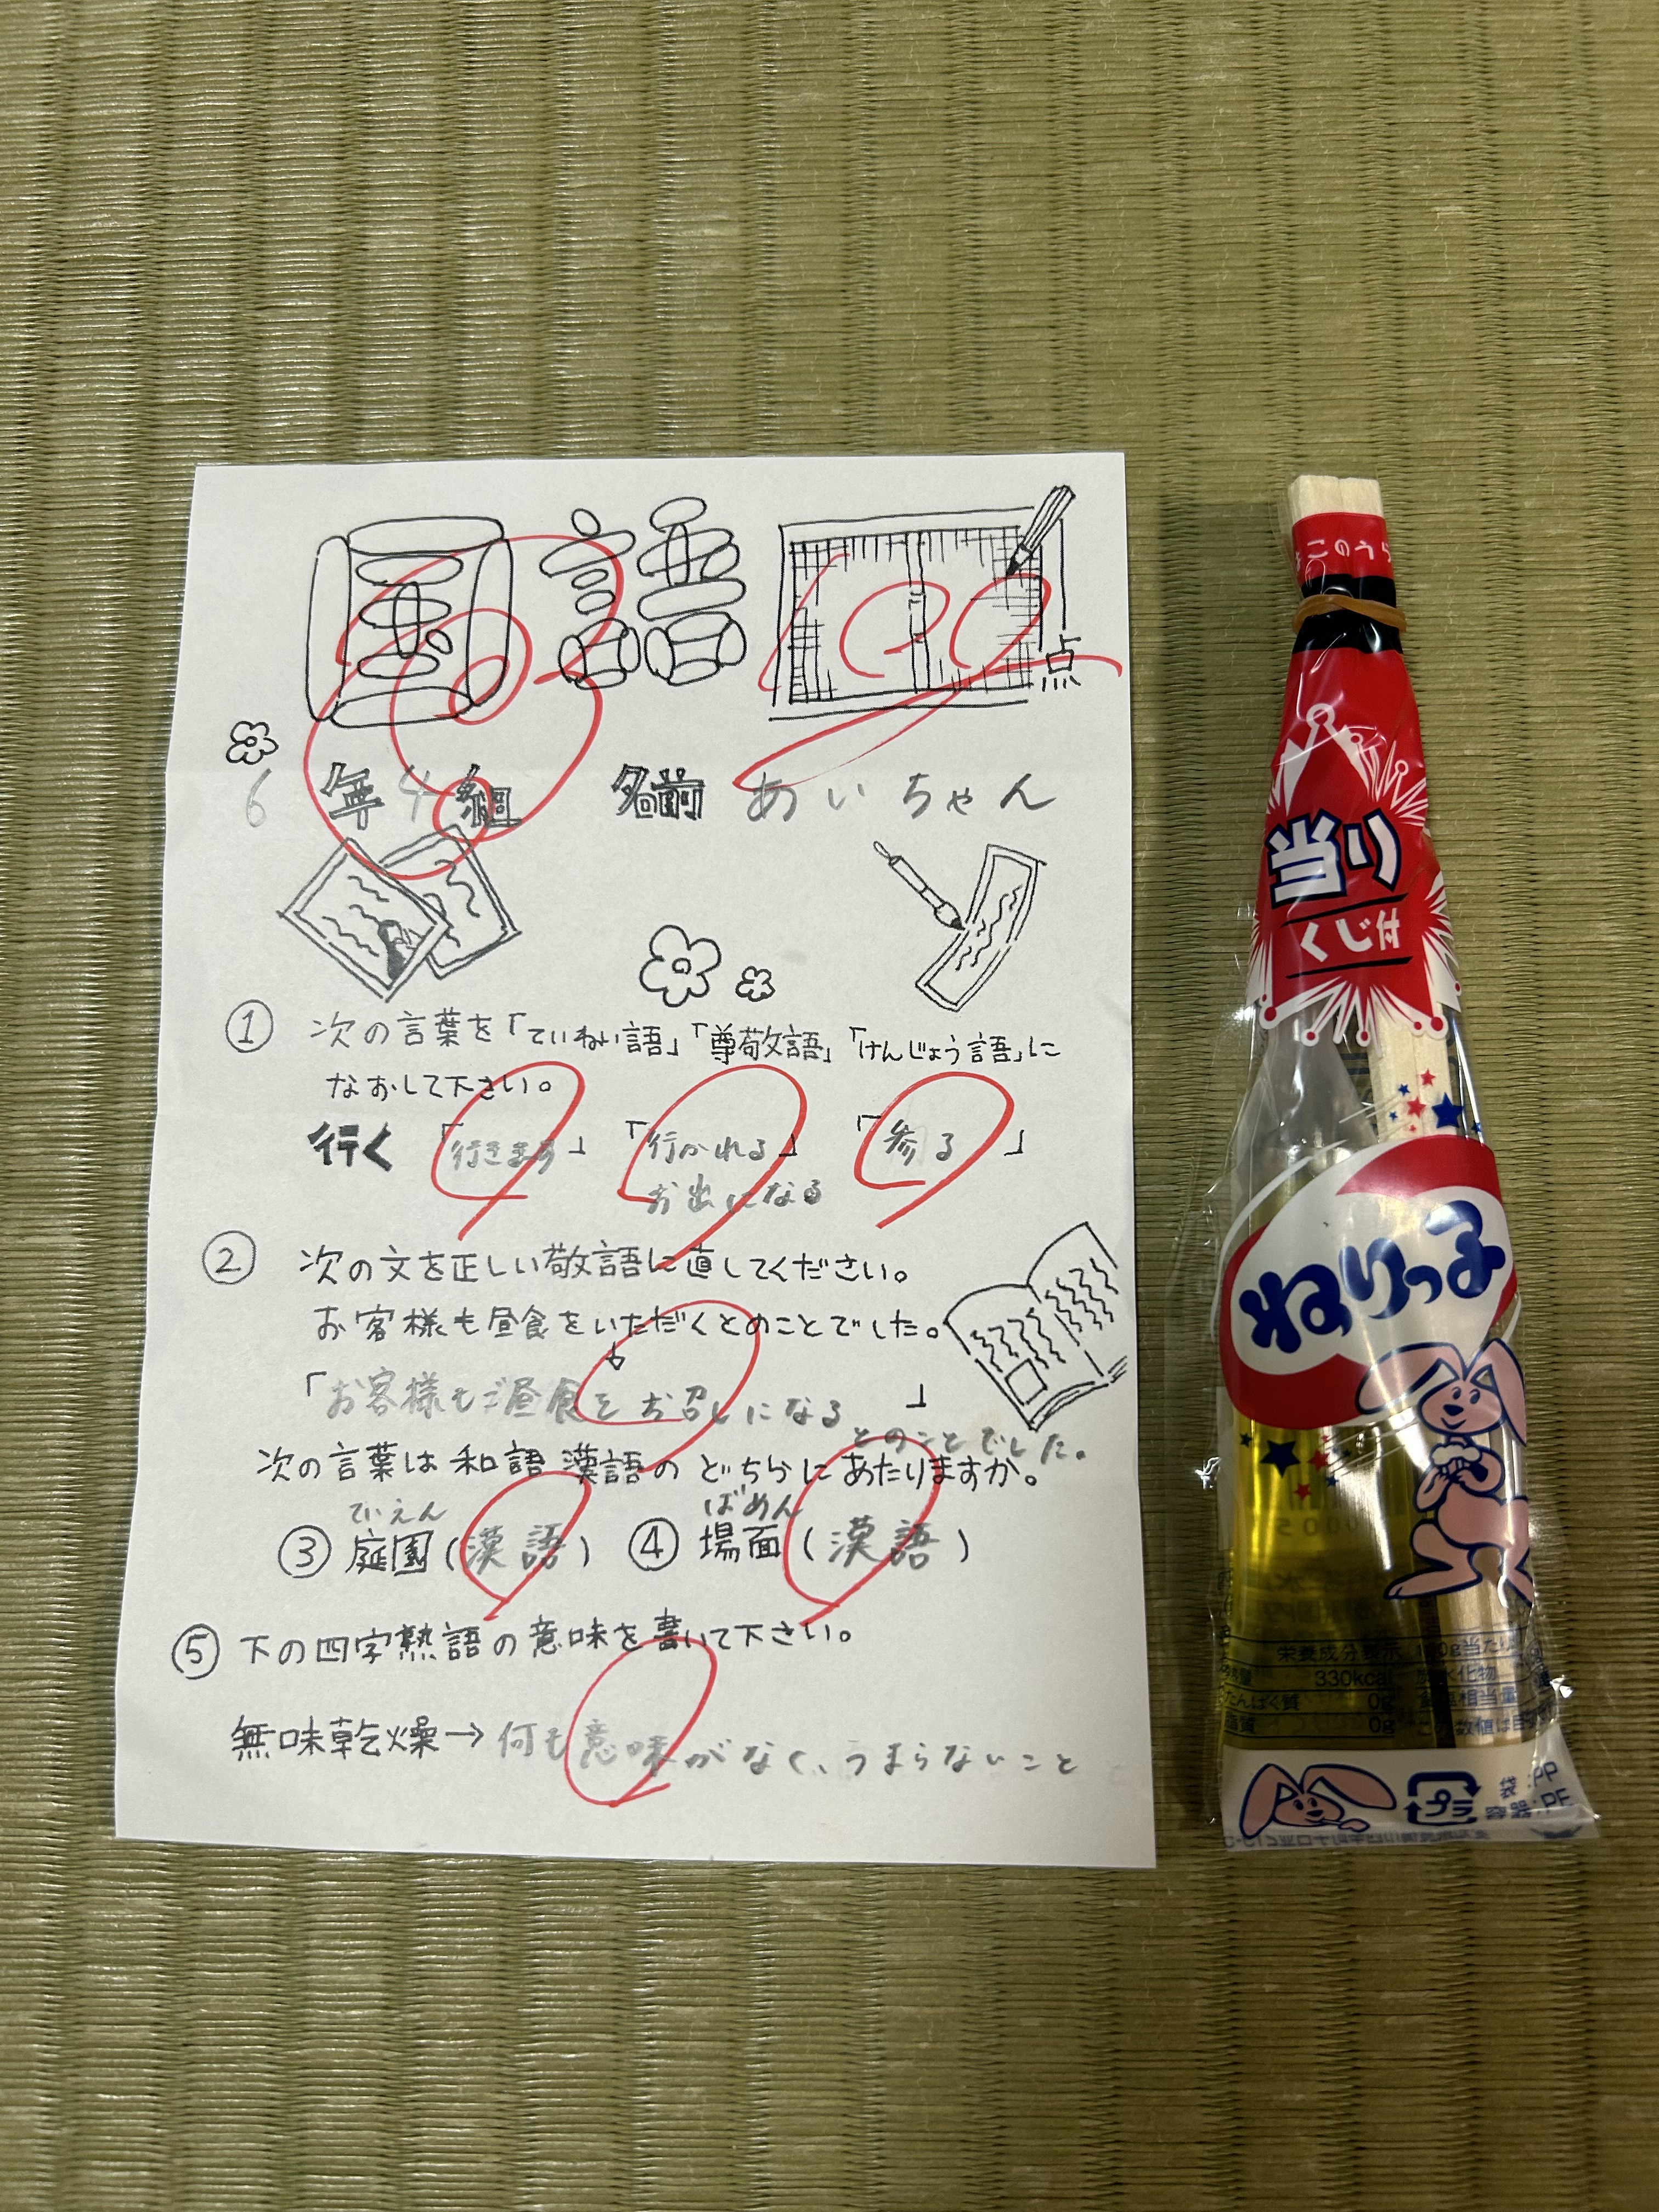 国語 100点
6年4組 名前 あいちゃん
① 次の言葉を「ていねい語」「尊敬語」「けんじょう語」に
なおして下さい。
行く 「行きます」 「行かれる」 「参る」
お出になる
② 次の文を正しい敬語に直してください。
お客様も昼食をいただくとのことでした。
「お客様もご昼食をお召しになる」
とのことでした。
次の言葉は和語 漢語のどちらにあたりますか。
ていえん ばめん
③ 庭園(漢語) ④ 場面(漢語)
⑤ 下の四字熟語の意味を書いて下さい。
無味乾燥→何も意味がなく、うまらないこと
このうら
当り
くじ付
ねりっ子
栄養成分表示
330kcal
たんぱく質 0g
脂質 0g
プラ
袋:PP
容器:PE